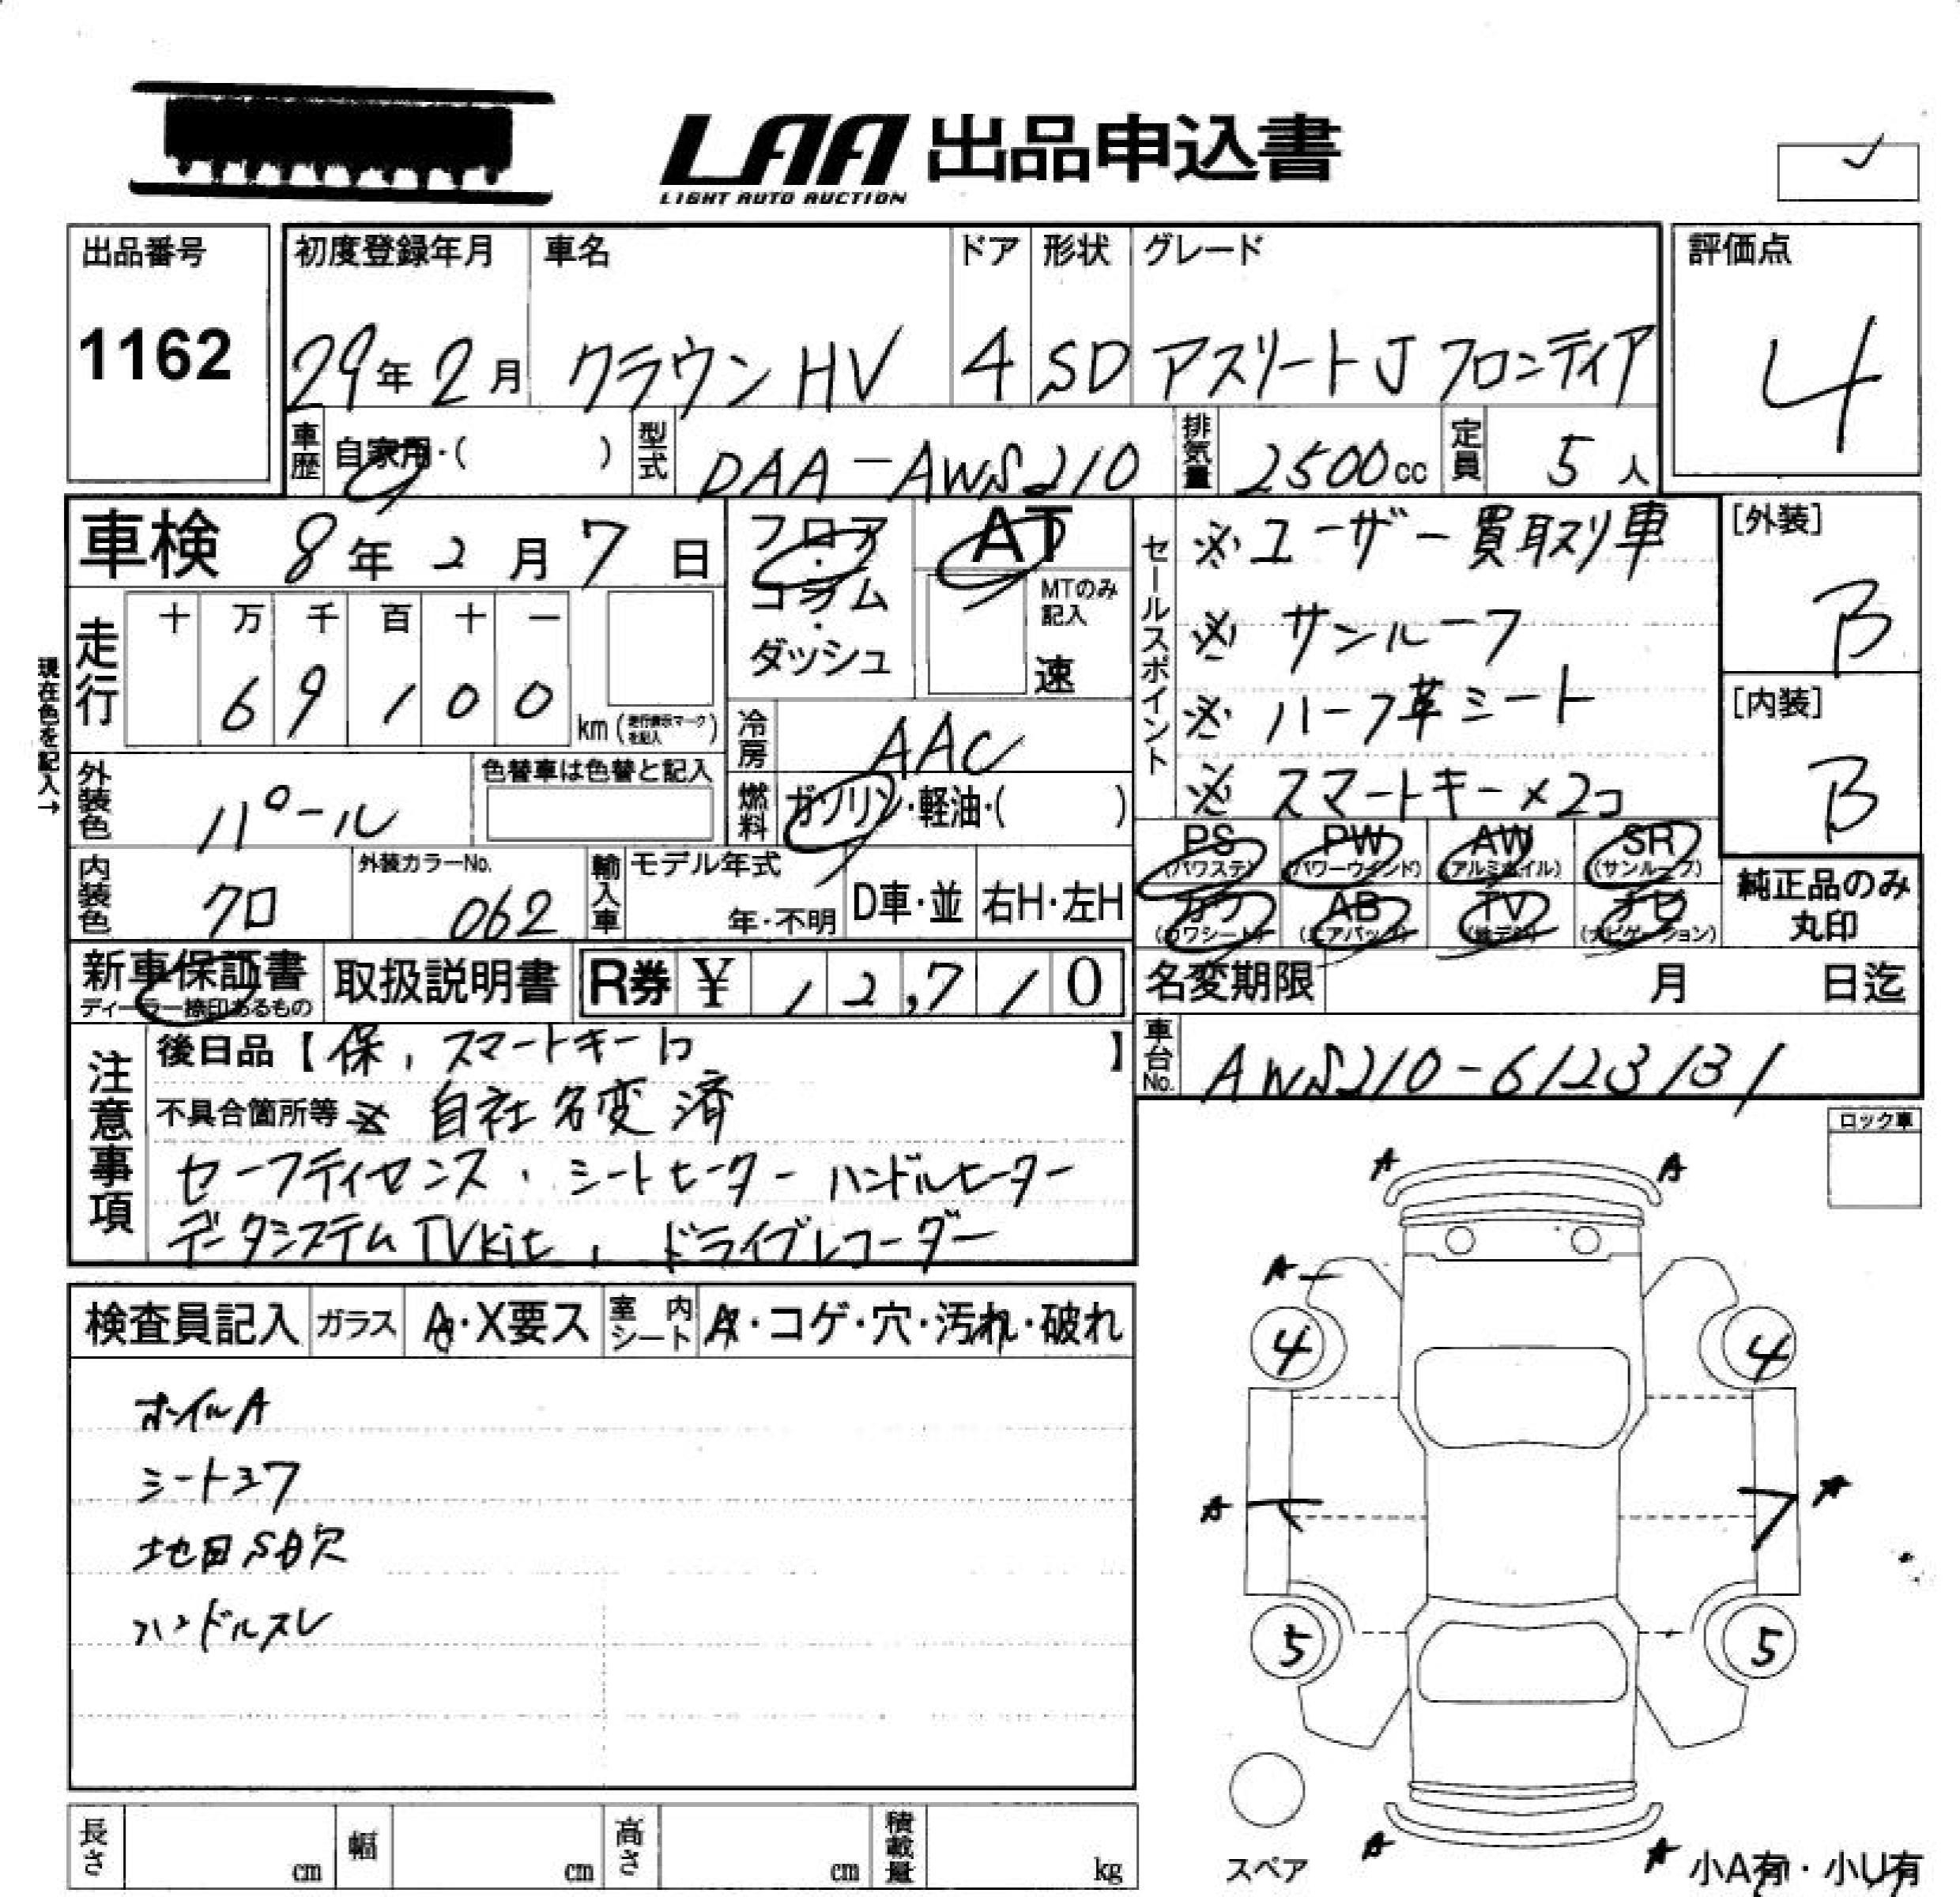 LAA 出品申込書
LIGHT AUTO AUCTION
出品番号
1162
初度登録年月 車名 ドア 形状 グレード
29年2月 クラウンHV 4 SD アスリートJフロンティア
評価点
4
車歴 自家用・( ) 型式 DAA-AWS210 排気量 2500cc 定員 5人
車検 8年2月7日
フロア・コラム・ダッシュ
AT
MTのみ記入
速
走行
十 万 千 百 十 一
6 9 1 0 0
km(走行表示マークを記入)
現在色を記入→
冷房 AAC
外装色 パール
色替車は色替と記入
燃料 ガソリン・軽油・( )
内装色 クロ
外装カラーNo. 062
輸入車 モデル年式
年・不明 D車・並 右H・左H
セールスポイント
※ユーザー買取り車
※サンルーフ
※ハーフ革シート
※スマートキー×2コ
[外装]
B
[内装]
B
PS PW AW SR
(パワステ) (パワーウインド) (アルミホイル) (サンルーフ)
カワ AB TV ナビ
(カワシート) (エアバック) (地デジ) (ナビゲーション)
純正品のみ
丸印
新車保証書
ディーラー捺印あるもの
取扱説明書
R券 ¥ 12,710
名変期限 月 日迄
車台No. AWS210-6123131
注意事項
後日品【保、スマートキー1コ】
不具合箇所等 ※自社名変済
セーフティセンス、シートヒーター ハンドルヒーター
データシステムTVkit、ドライブレコーダー
ロック車
検査員記入 ガラス A・X要ス 室内シート A・コゲ・穴・汚れ・破れ
ホイルA
シートヨワ
ハンドルスレ
A A
A
4 4
A A
5 5
A A
スペア
小A有・小U有
長さ cm 幅 cm 高さ cm 積載量 kg